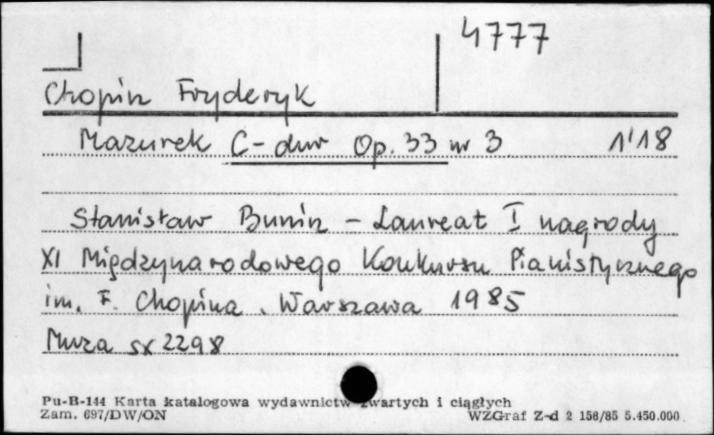 4777
Chopin Fryderyk
Mazurek C-dur Op. 33 nr 3 1'18
Stanisław Bunin – Laureat I nagrody
XI Międzynarodowego Konkursu Pianistycznego
im. F. Chopina, Warszawa 1985
Muza sx 2298
Pu-B-144 Karta katalogowa wydawnictw zwartych i ciągłych
Zam. 697/DW/ON WZGraf Z-d 2 158/85 5.450.000